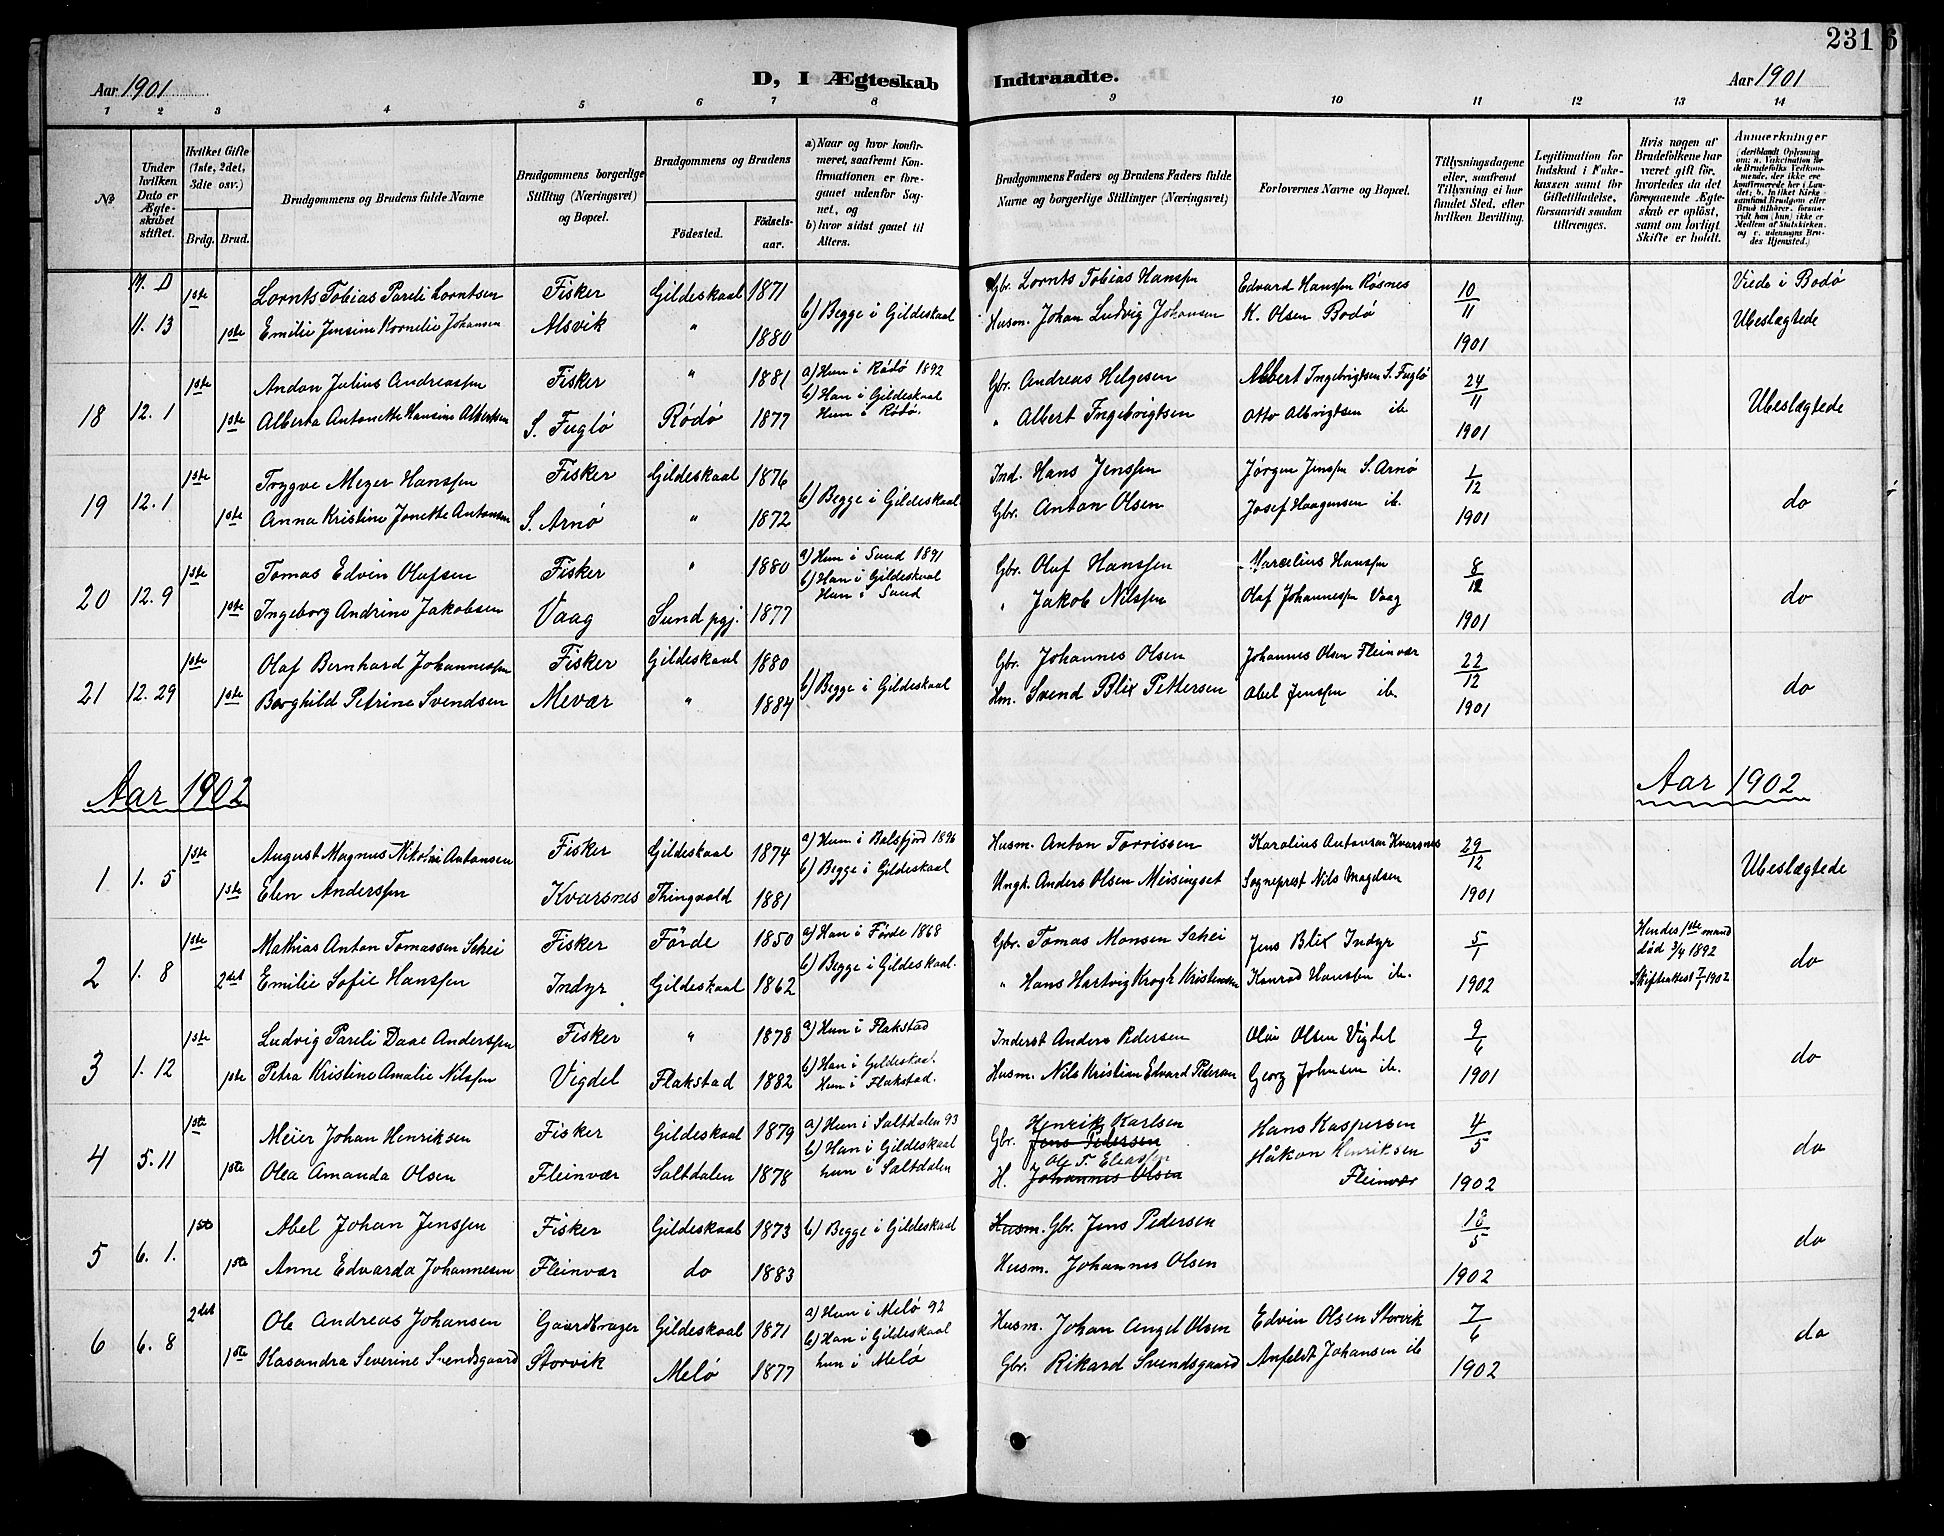 231
6
Aar 1901
D, I Ægteskab
Indtraadte.
Aar 1901
1 2 3 4 5 6 7 8 9 10 11 12 13 14
№
Under hvilken Dato er Ægteskabet stiftet.
Hvilket Gifte (1ste, 2det, 3die osv.)
Brdg. Brud.
Brudgommens og Brudens fulde Navne
Brudgommens borgerlige Stilling (Næringsvei) og Bopæl.
Brudgommens og Brudens
Fødested.
Fødsels-aar.
a) Naar og hvor konfirmeret, saafremt Konfirmationen er foregaaet udenfor Sognet, og
b) hvor sidst gaaet til Alters.
Brudgommens Faders og Brudens Faders fulde Navne og borgerlige Stillinger (Næringsvei)
Forlovernes Navne og Bopæl.
Tillysningsdagene eller, saafremt Tillysning ei har fundet Sted, efter hvilken Bevilling.
Legitimation for Indskud i Enkekassen samt for Giftetilladelse, forsaavidt saadan tiltrænges.
Hvis nogen af Brudefolkene har været gift før, hvorledes da det foregaaende Ægteskab er opløst, samt om lovligt Skifte er holdt.
Anmærkninger
(deriblandt Oplysning om: a. Vakcination for de Brudefolks Vedkommende, der ikke ere konfirmerede her i Landet; b. hvilket Kirkesamfund Brudgom eller Brud tilhører, forsaavidt han (hun) ikke er Medlem af Statskirken, og c. udensogns Brudes Hjemsted.)
1ste Lornts Tobias Pareli Lorntsen Fisker Gildeskaal 1871 b) Begge i Gildeskaal Gbr. Lornts Tobias Hanssen Edvard Hanssen Røsnes 10/11 Viede i Bodø
11. 13 1ste Emilie Jensine Kornelie Johansen Alsvik " 1880 Husm. Johan Ludvig Johansen K. Olsen Bodø 1901 Ubeslægtede
1ste Andon Julius Andreassen Fisker " 1881 a) Hun i Rødø 1892 Gbr. Andreas Helgesen Albert Ingebrigtsen S. Fuglø 24/11 Ubeslægtede
b) Han i Gildeskaal
18 12. 1 1ste Alberta Antonette Hansine Albertsen S. Fuglø Rødø 1877 Hun i Rødø. " Albert Ingebrigtsen Otto Albrigtsen ib. 1901
1ste Trygve Mezer Hanssen Fisker Gildeskaal 1876 b) Begge i Gildeskaal Ind. Hans Jenssen Jørgen Jenssen S. Arnø 1/12 do
19 12. 1 1ste Anna Kristine Jonette Antonsen S. Arnø " 1872 Gbr. Anton Olsen Josef Haagensen ib. 1901
1ste Tomas Edvin Olafsen Fisker " 1880 a) Hun i Sund 1891 Gbr. Olaf Hanssen Marcelius Hanssen 8/12 do
b) Han i Gildeskaal
20 12. 9 1ste Ingeborg Andrine Jakobsen Vaag Sund pgj. 1877 Hun i Sund " Jakob Nilssen Olaf Johannessen Vaag 1901
1ste Olaf Bernhard Johannessen Fisker Gildeskaal 1880 b) Begge i Gildeskaal Gbr. Johannes Olsen Johannes Olsen Fleinvær 22/12 do
21 12. 29 1ste Borghild Petrine Svendsen Mevær " 1884 Hm. Svend Blix Pettersen Abel Jenssen ib. 1901
Aar 1902
Aar 1902
1ste August Magnus Nikolai Antonsen Fisker Gildeskaal 1874 a) Hun i Balsfjord 1896 Husm. Anton Torrissen Karolius Antonsen Kvarsnes 29/12 Ubeslægtede
1 1. 5 1ste Elen Anderssen Kvarsnes Thingvold 1881 b) Begge i Gildeskaal Ungk. Anders Olsen Meisingset Sogneprest Nils Magelsen 1901
1ste Mathias Anton Tomassen Schei Fisker Förde 1850 a) Han i Förde 1868 Gbr. Tomas Monsen Schei Jens Blix Indyr 5/1 Hendes 1ste mand død 3/4 1892 do
2 1. 8 2det Emilie Sofie Hanssen Indyr Gildeskaal 1862 b) Begge i Gildeskaal. " Hans Hartvig Krogh Kristensen Konrad Hanssen ib. 1902 Skifteattest 7/1 1902
1ste Ludvig Pareli Daae Anderssen Fisker " 1878 a) Hun i Flakstad Inderst Anders Pedersen Olai Olsen Vigdel 9/6 do
b) Han i Gildeskaal.
3 1. 12 1ste Petra Kristine Amalie Nilssen Vigdel Flakstad 1882 Hun i Flakstad. Husm. Nils Kristian Edvard Pedersen Georg Johnsen ib. 1901
1ste Meier Johan Henriksen Fisker Gildeskaal 1879 a) Hun i Saltdalen 93 Gbr. Henrik Karlsen Jens Pedersen Hans Kaspersen 4/5 do
b) Han i Gildeskaal Håkon Henriksen
4 5. 11 1ste Olea Amanda Olsen Fleinvær Saltdalen 1878 hun i Saltdalen H. Ole T. Eliassen Johannes Olsen Fleinvær 1902
1ste Abel Johan Jenssen Fisker Gildeskaal 1873 b) Begge i Gildeskaal Husm. Gbr. Jens Pedersen 18/5 do
5 6. 1. 1ste Anne Edvarda Johannesen Fleinvær do 1883 Husm. Johannes Olsen 1902
2det Ole Andreas Johansen Gaardbruger Gildeskaal 1871 a) Hun i Melø 92 Husm. Johan Angel Olsen Edvin Olsen Storvik 7/6 do
b) Han i Gildeskaal
6 6. 8 1ste Kasandra Severine Svendsgaard Storvik Melø 1877 hun i Melø Gbr. Rikard Svendsgaard Anfeldt Johansen ib 1902